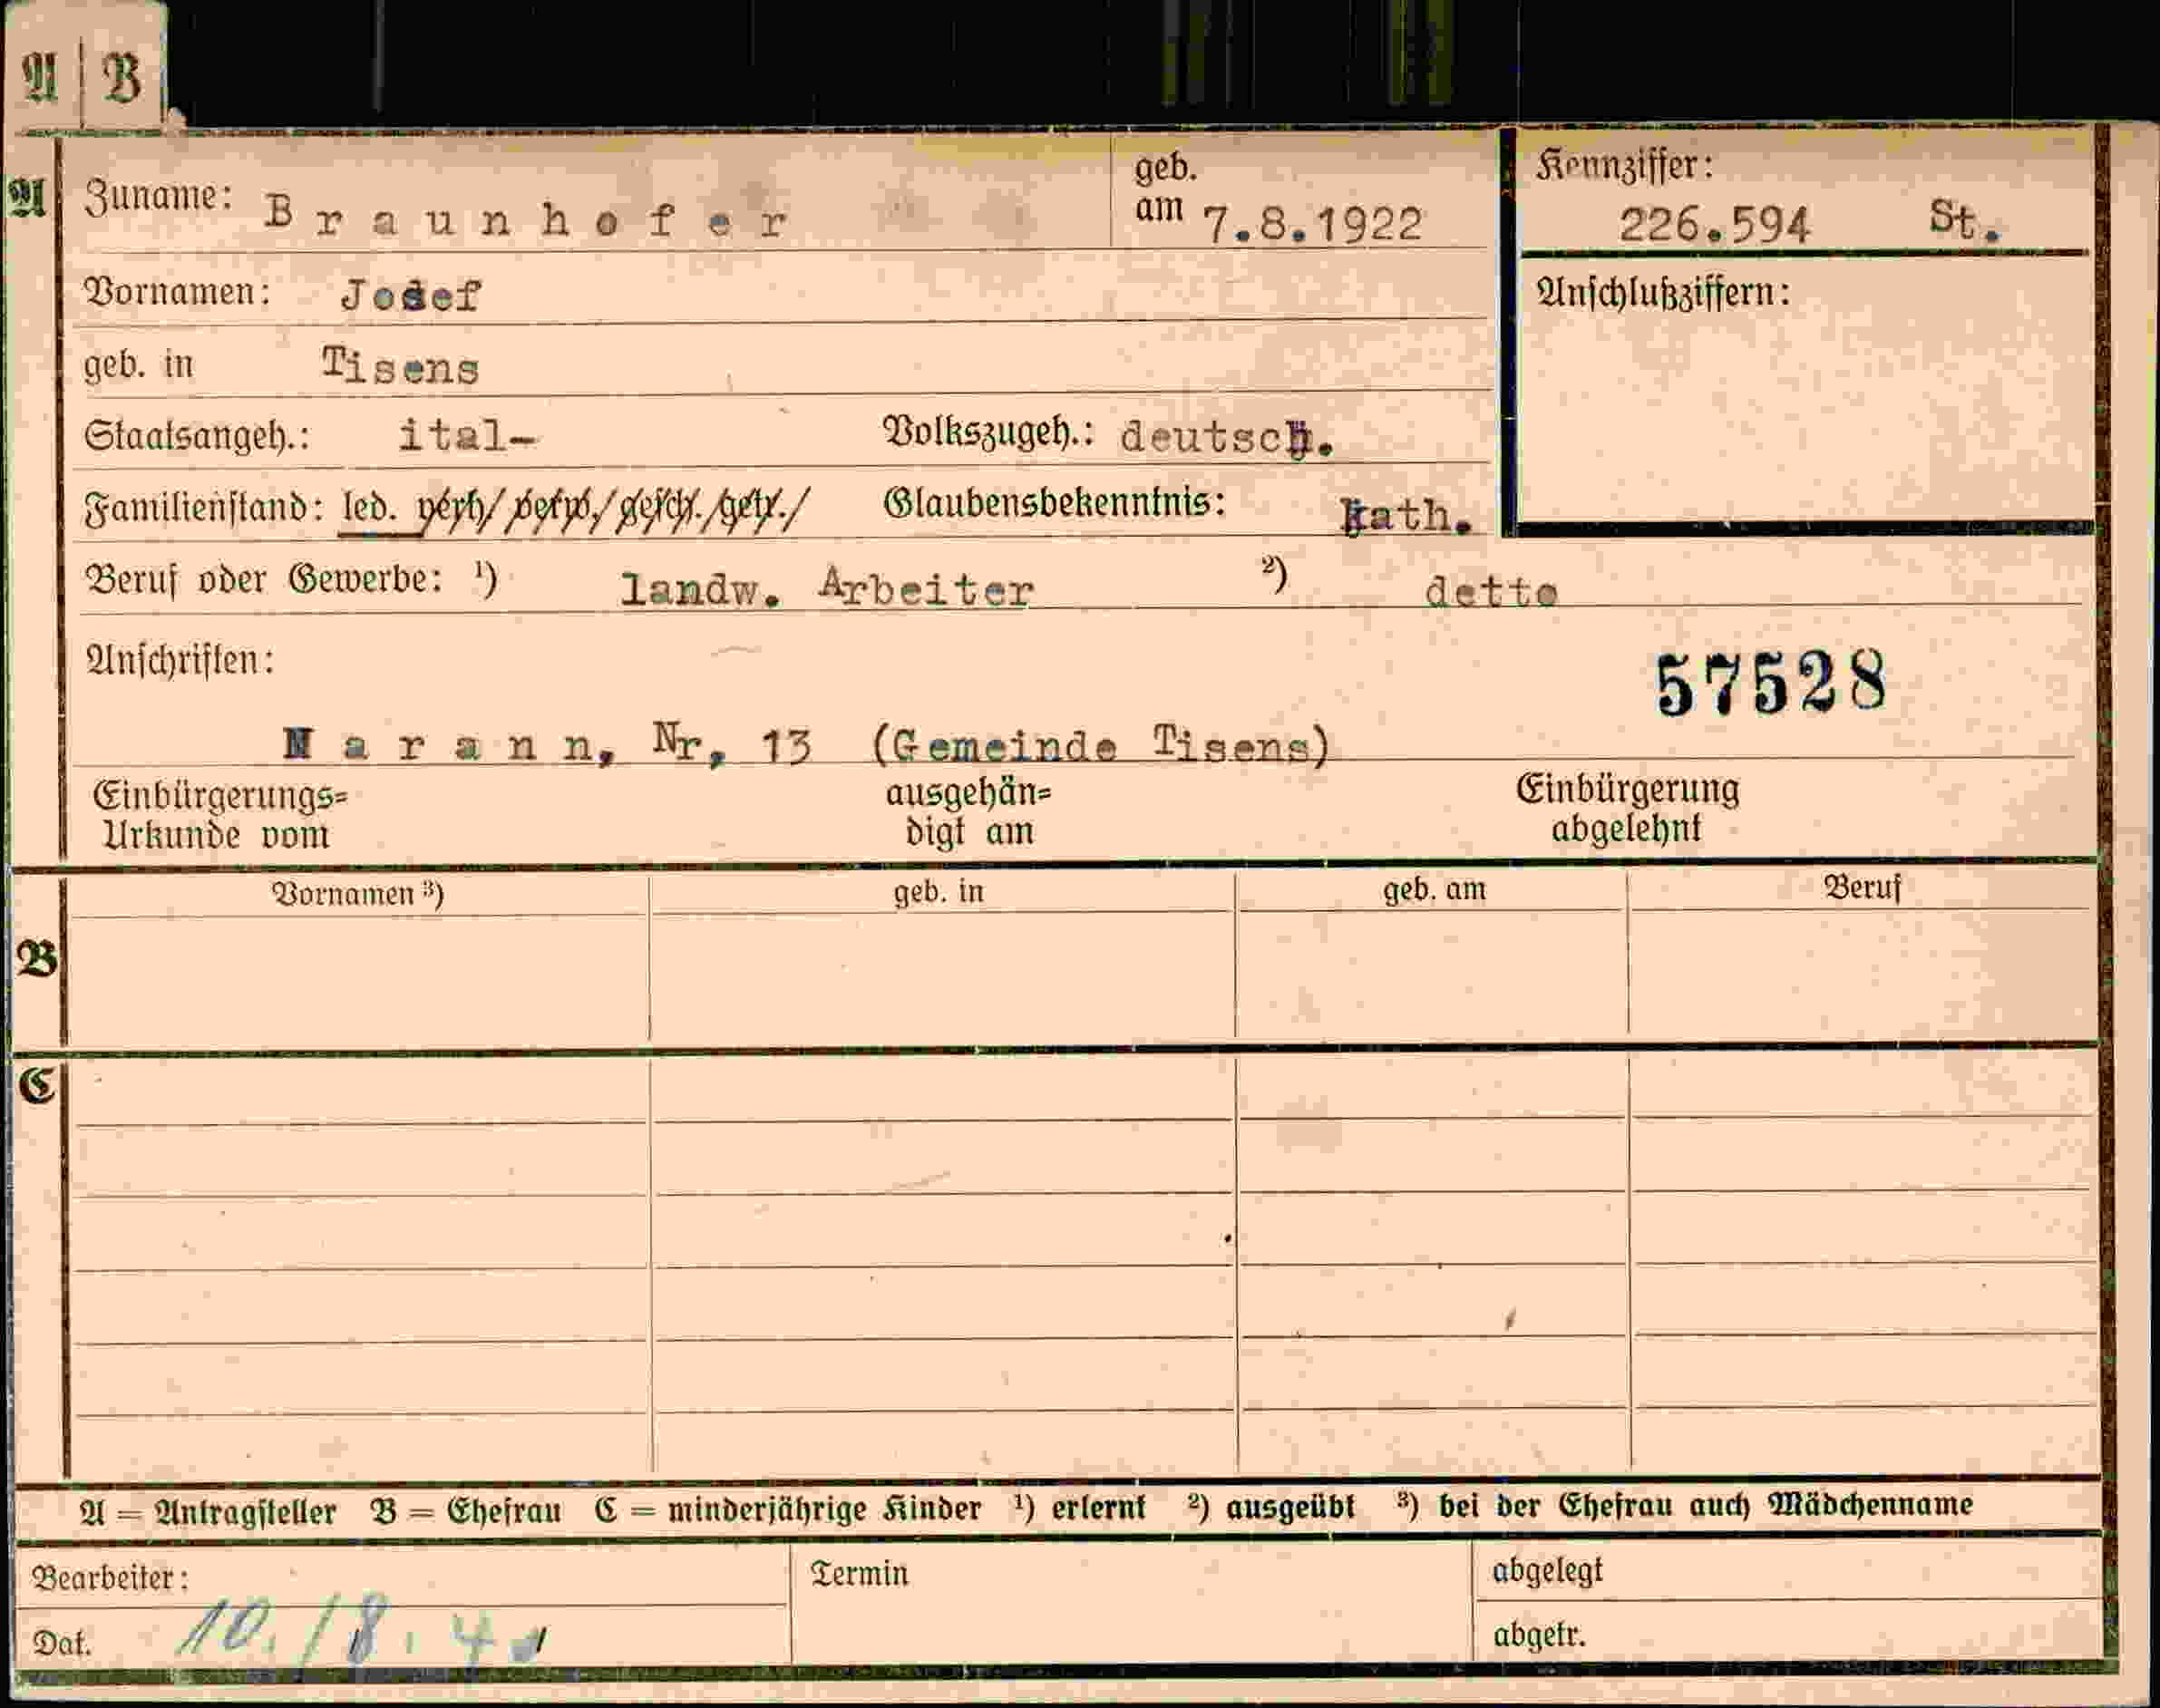 A | B
A Zuname: Braunhofer geb. am 7.8.1922 Kennziffer: 226.594 St.
Vornamen: Josef Anschlußziffern:
geb. in Tisens
Staatsangeh.: ital- Volkszugeh.: deutsch.
Familienstand: led. verh/ verw./gesch./getr./ Glaubensbekenntnis: kath.
Beruf oder Gewerbe: ¹) landw. Arbeiter ²) detto
Anschriften:
57528
Narann, Nr, 13 (Gemeinde Tisens)
Einbürgerungs= ausgehän= Einbürgerung
Urkunde vom digt am abgelehnt
Vornamen ³) geb. in geb. am Beruf
B
C
A = Antragsteller B = Ehefrau C = minderjährige Kinder ¹) erlernt ²) ausgeübt ³) bei der Ehefrau auch Mädchenname
Bearbeiter: Termin abgelegt
Dat. 10./8. 41 abgetr.